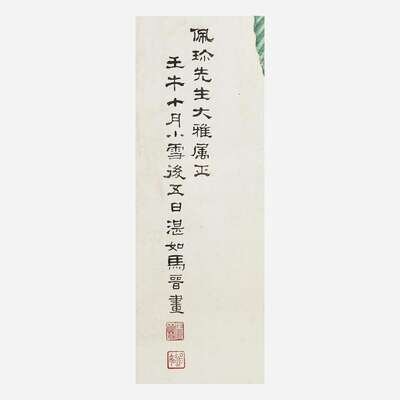 佩珎先生大雅属正
壬午十月小雪後五日湛如馬晉畫